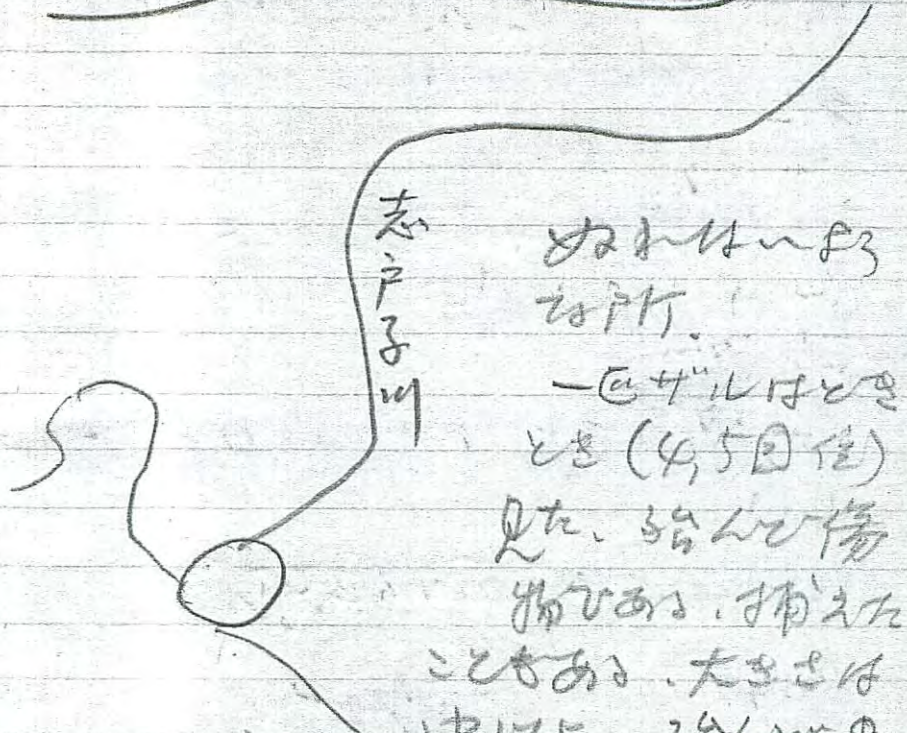 志戸子川
ぬれないよう
な所.
一匹ザルはとき
とき(4,5回位)
見た、殆んど傷
物である、捕えた
こともある、大きさは